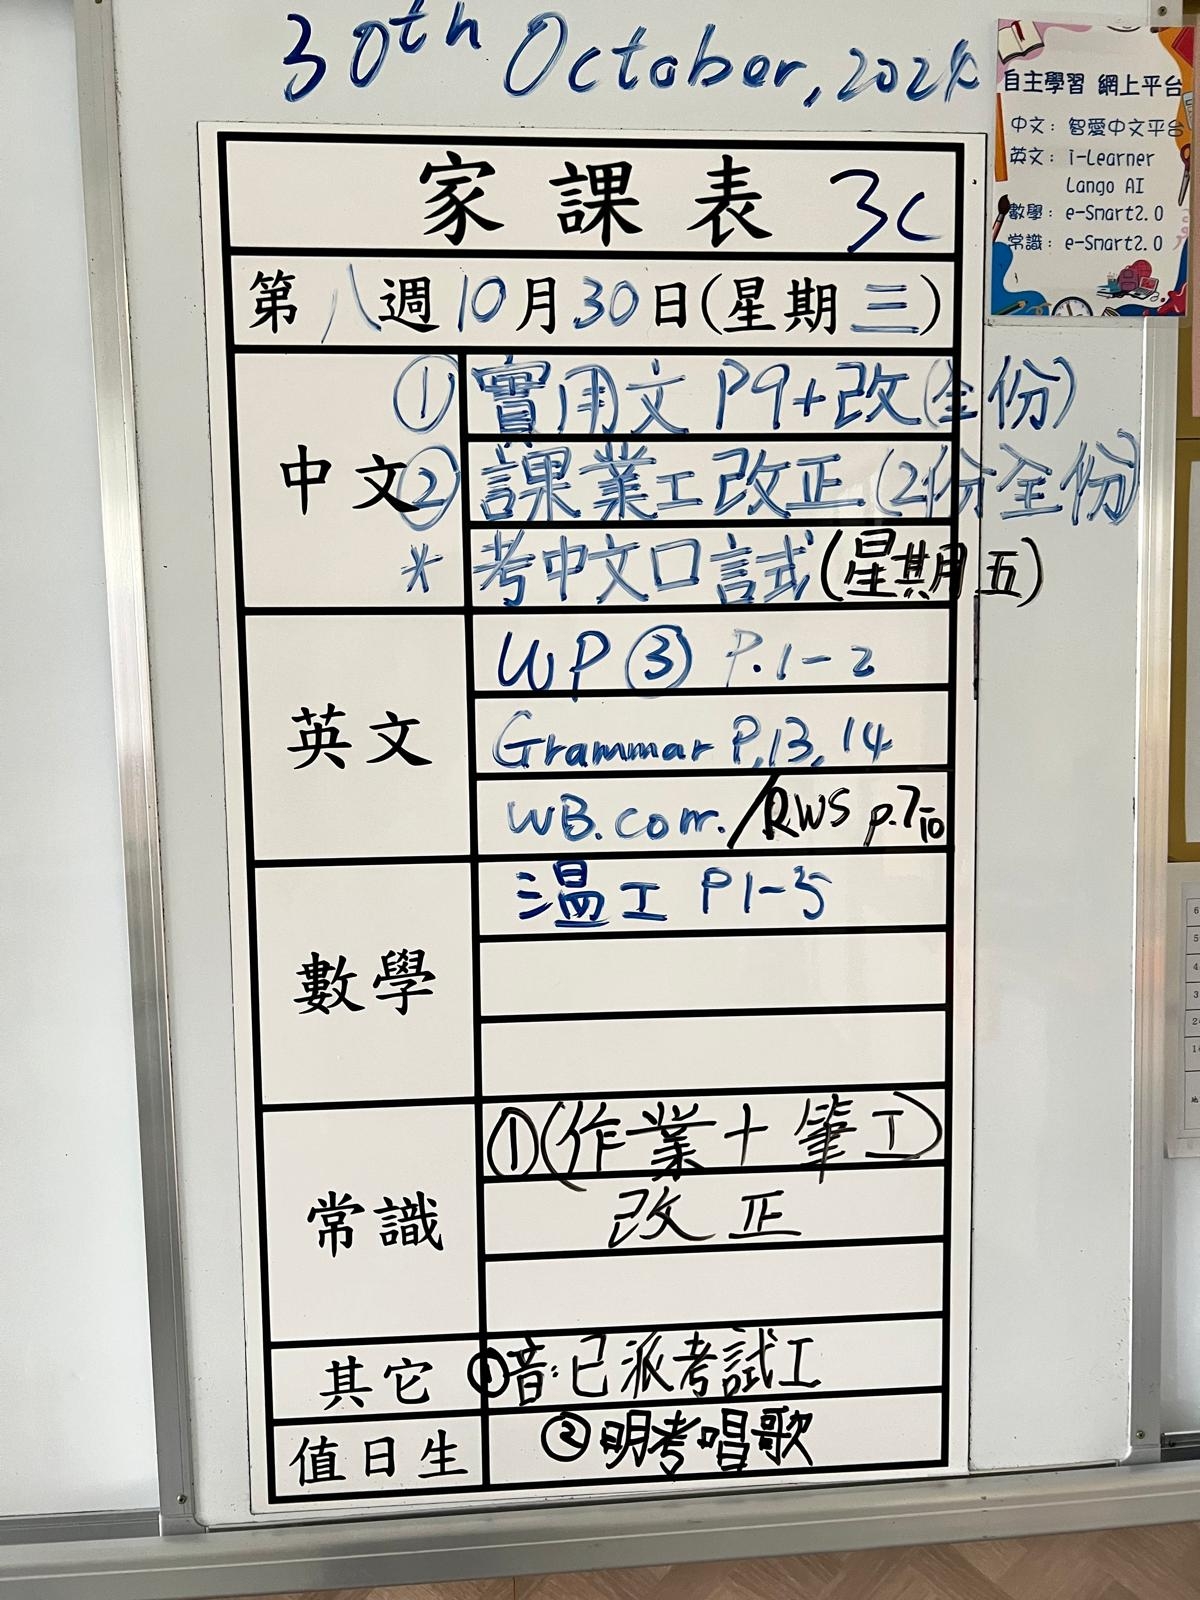 30th October, 2024
自主學習 網上平台
中文：智愛中文平台
英文：i-Learner
Lango AI
數學：e-Smart2.0
常識：e-Smart2.0
家課表 3C
第八週10月30日(星期三)
中文
① 實用文 P9+改(全份)
② 課業工改正(2份全份)
* 考中文口試(星期五)
英文
WP ③ P.1-2
Grammar P.13, 14
WB. corr./RWS p.7-10
數學
溫工 P1-5
常識
①(作業+筆工)
改正
其它
①音:已派考試工
值日生
②明考唱歌